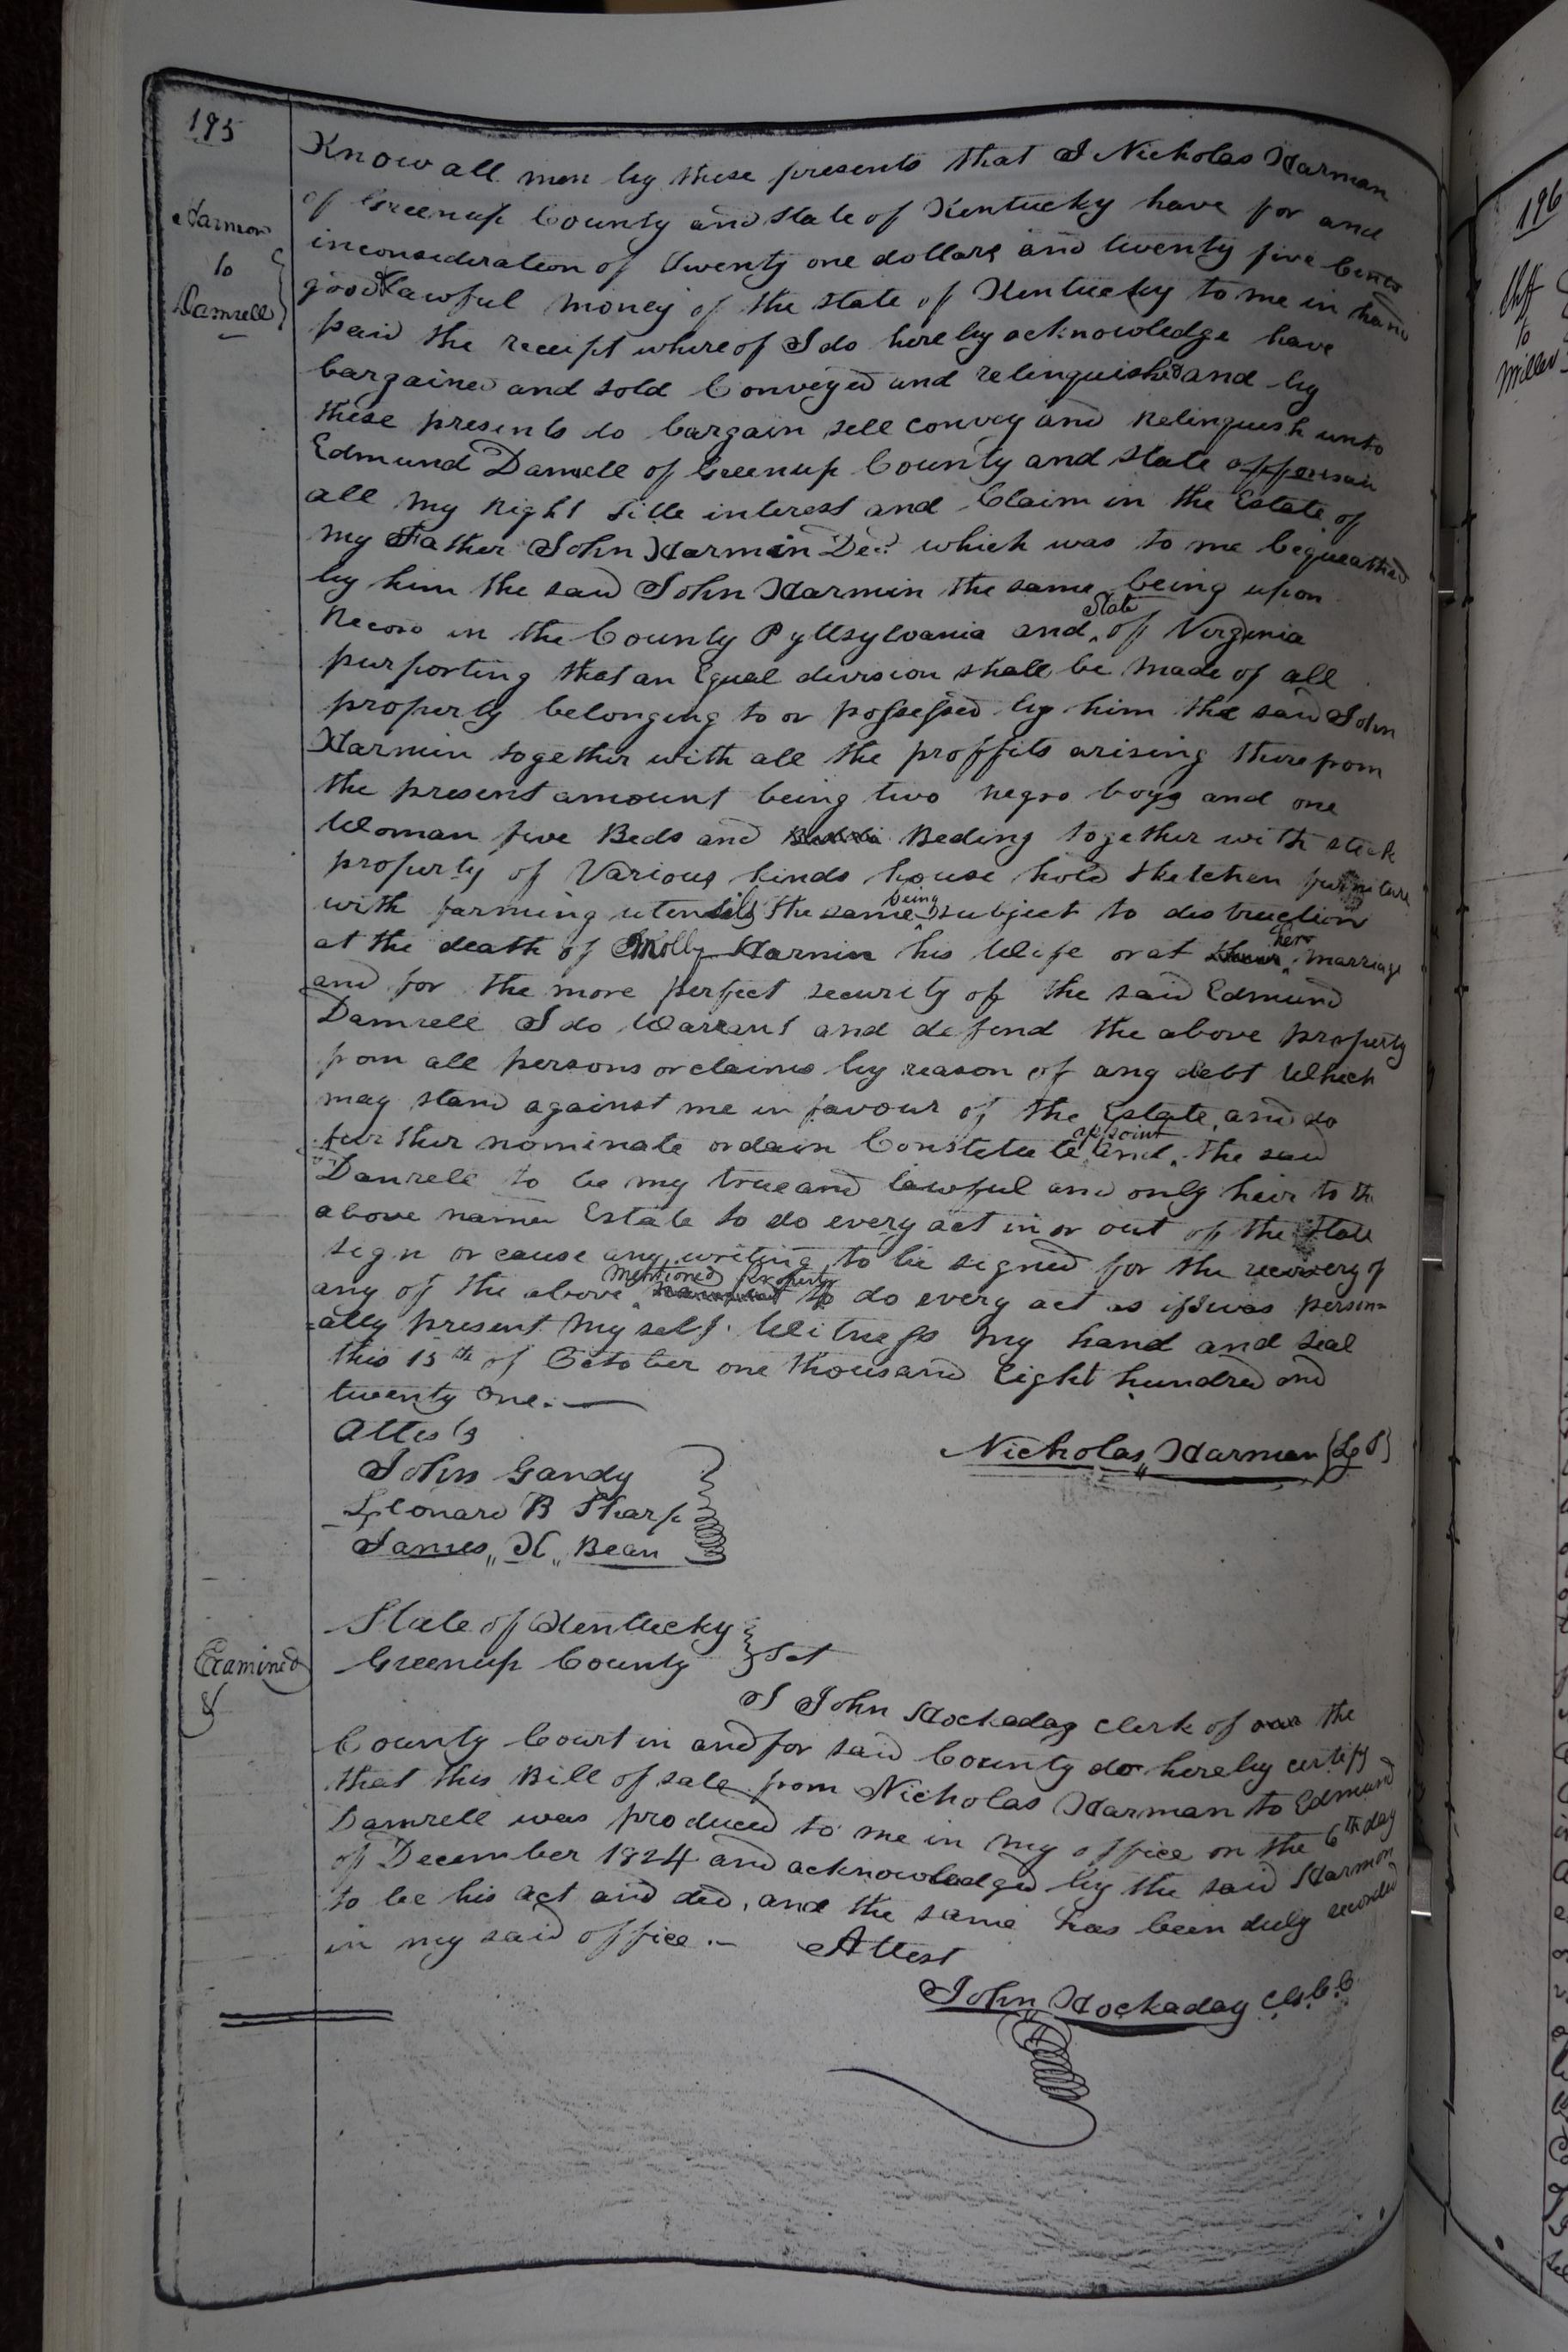 195
Harmon
to
Damrell
Know all men by these presents that I Nicholas Harman
of Greenup County and state of Kentucky have for and
inconsideration of Twenty one dollars and twenty five Cents
good & lawful money of the state of Kentucky to me in hand
paid the receipt whereof I do hereby acknowledge have
bargained and sold Conveyed and relinquished and by
these presents do bargain sell convey and Relinquish unto
Edmund Damrell of Greenup County and state afforsaid
all my Right Title interest and Claim in the Estate of
my Father John Harmin Decd which was to me bequeathed
by him the said John Harmin the same being upon
Record in the County Pyttsylvania and State of Virginia
purporting that an Equal division shall be made of all
property belonging to or possessed by him the said John
Harmin together with all the proffits arising therefrom
the present amount being two negro boys and one
Woman five Beds and Beding together with stock
property of Various kinds house hold & ketchen furniture
with farming utensils the same being subject to distruction
at the death of Molly Harmin his Wife or at her marriage
and for the more perfect security of the said Edmund
Damrell I do Warrant and defend the above property
from all persons or claims by reason of any debt Which
may stand against me in favour of the Estate, and do
further nominate ordain Constitute and appoint the said
Damrell to be my true and lawful and only heir to the
above name Estate to do every act in or out of the State
sign or cause any writing to be signed for the recovery of
any of the above mentioned Property to do every act as if I was person=
=ally present my self. Witness my hand and seal
this 15th of October one thousand Eight hundred and
twenty One.
Attests
Nicholas Harman {LgS}
John Gandy
Leonard B Sharp
James H Bean
State of Kentucky
Greenup County } Sct
Examined
I John Hockaday Clerk of the
County Court in and for said County do hereby certify
that this Bill of sale from Nicholas Harman to Edmund
Damrell was produced to me in my office on the 6th day
of December 1824 and acknowledged by the said Harmon
to be his act and ded, and the same has been duly recorded
in my said office. Attest
John Hockaday Clk.C.C.
196
to
Miller